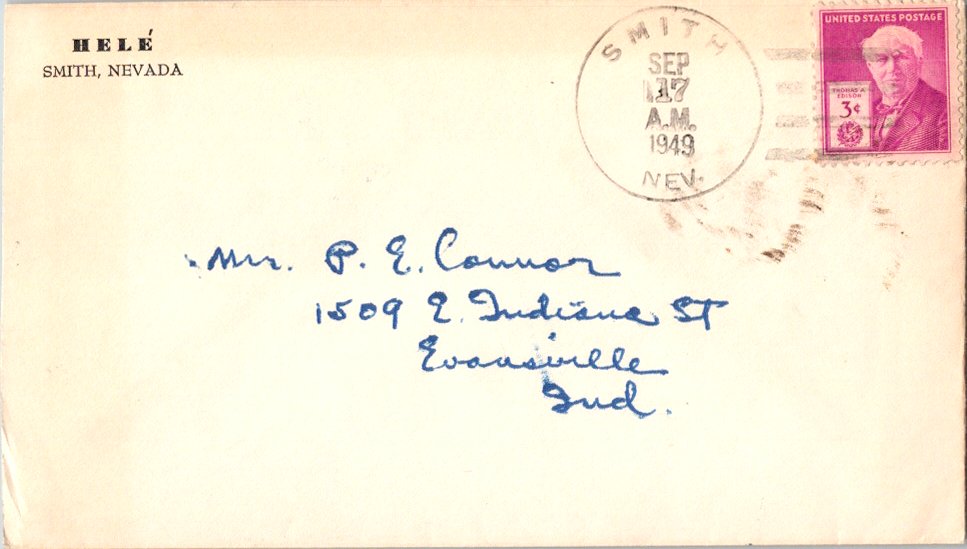 HELÉ
SMITH, NEVADA
SMITH
SEP
17
A.M.
1949
NEV.
UNITED STATES POSTAGE
THOMAS A.
EDISON
3¢
Mr. P. E. Connor
1509 E. Indiana ST
Evansville
Ind.